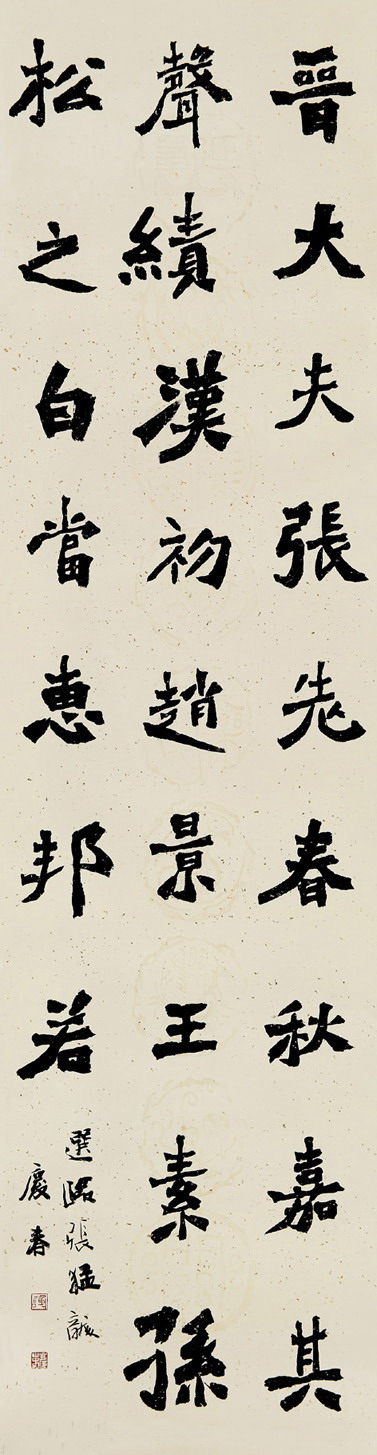 晉大夫張老春秋嘉其
聲績漢初趙景王素孫
松之白當惠邦若
選臨張猛龍
慶春